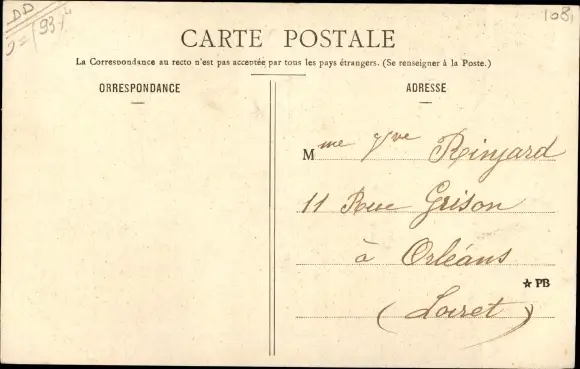 DD
108,
CARTE POSTALE
La Correspondance au recto n'est pas acceptée par tous les pays étrangers. (Se renseigner à la Poste.)
ORRESPONDANCE
ADRESSE
Mme Vve Rinjard
11 Rue Grison
à Orléans
☆ PB
(Loiret)